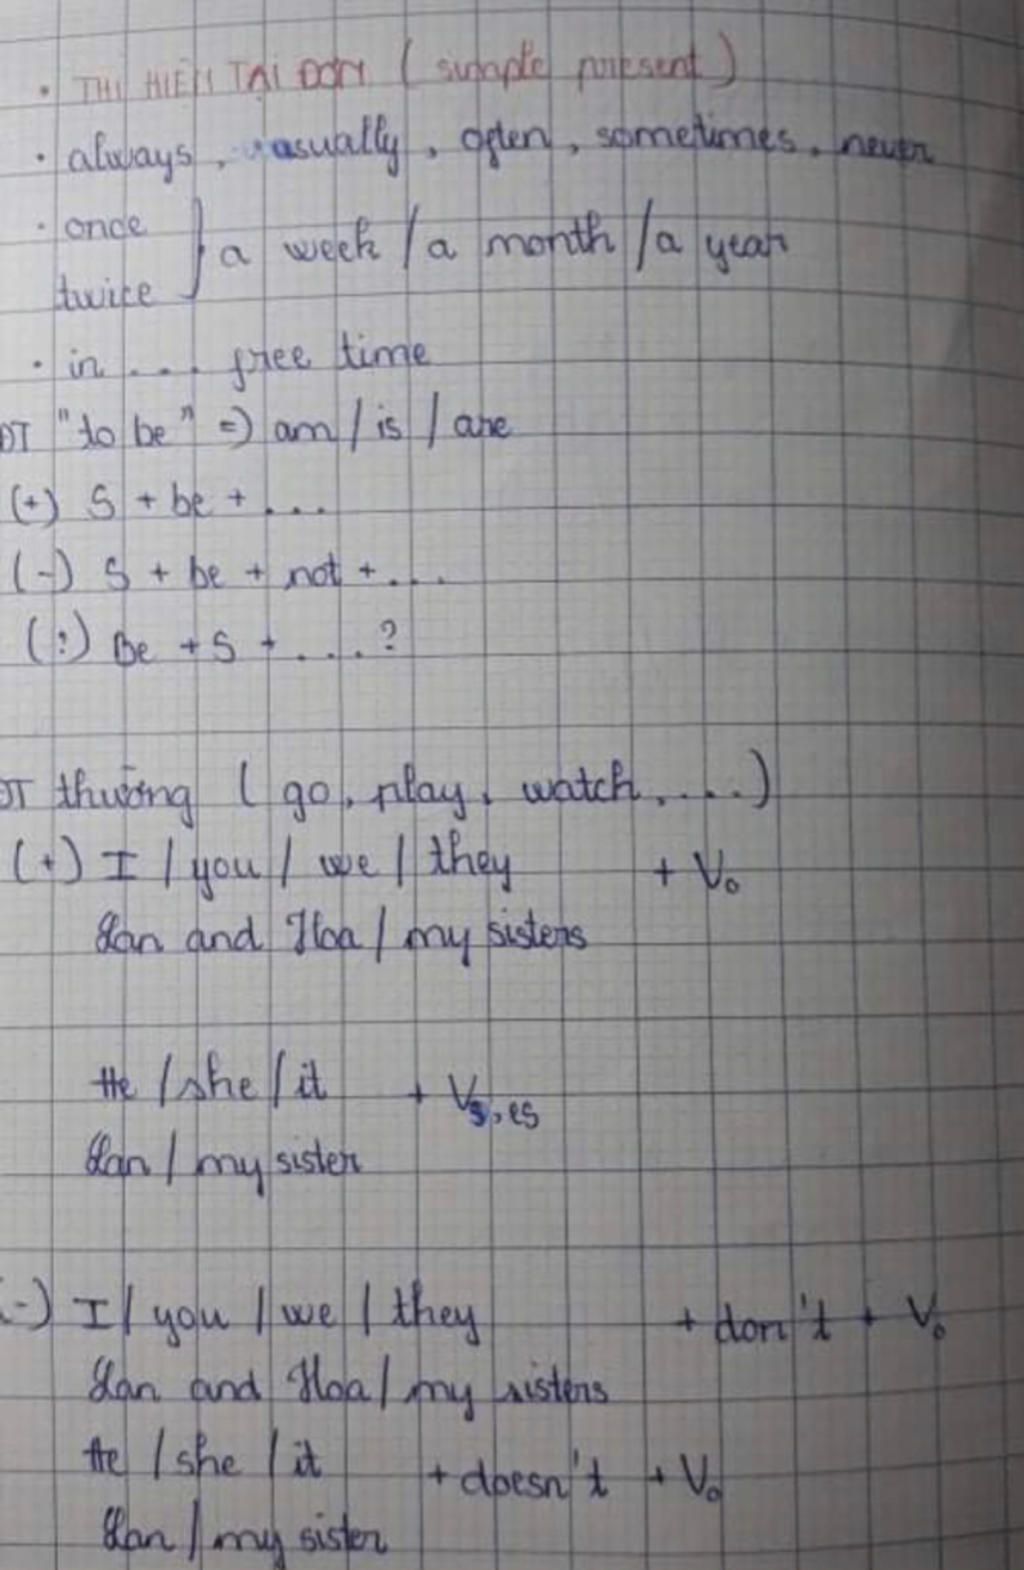 • THÌ HIỆN TẠI ĐƠN ( simple present )
• always, usually, often, sometimes, never
• once } a week / a month / a year
twice
• in .... free time
ĐT "to be" => am / is / are
(+) S + be + ...
(-) S + be + not + ....
(?) Be + S + ....?
ĐT thường ( go, play, watch, ....)
(+) I / you / we / they + V₀
Lan and Hoa / my sisters
He / she / it + Vs, es
Lan / my sister
(-) I / you / we / they + don't + V₀
Lan and Hoa / my sisters
He / she / it + doesn't + V₀
Lan / my sister